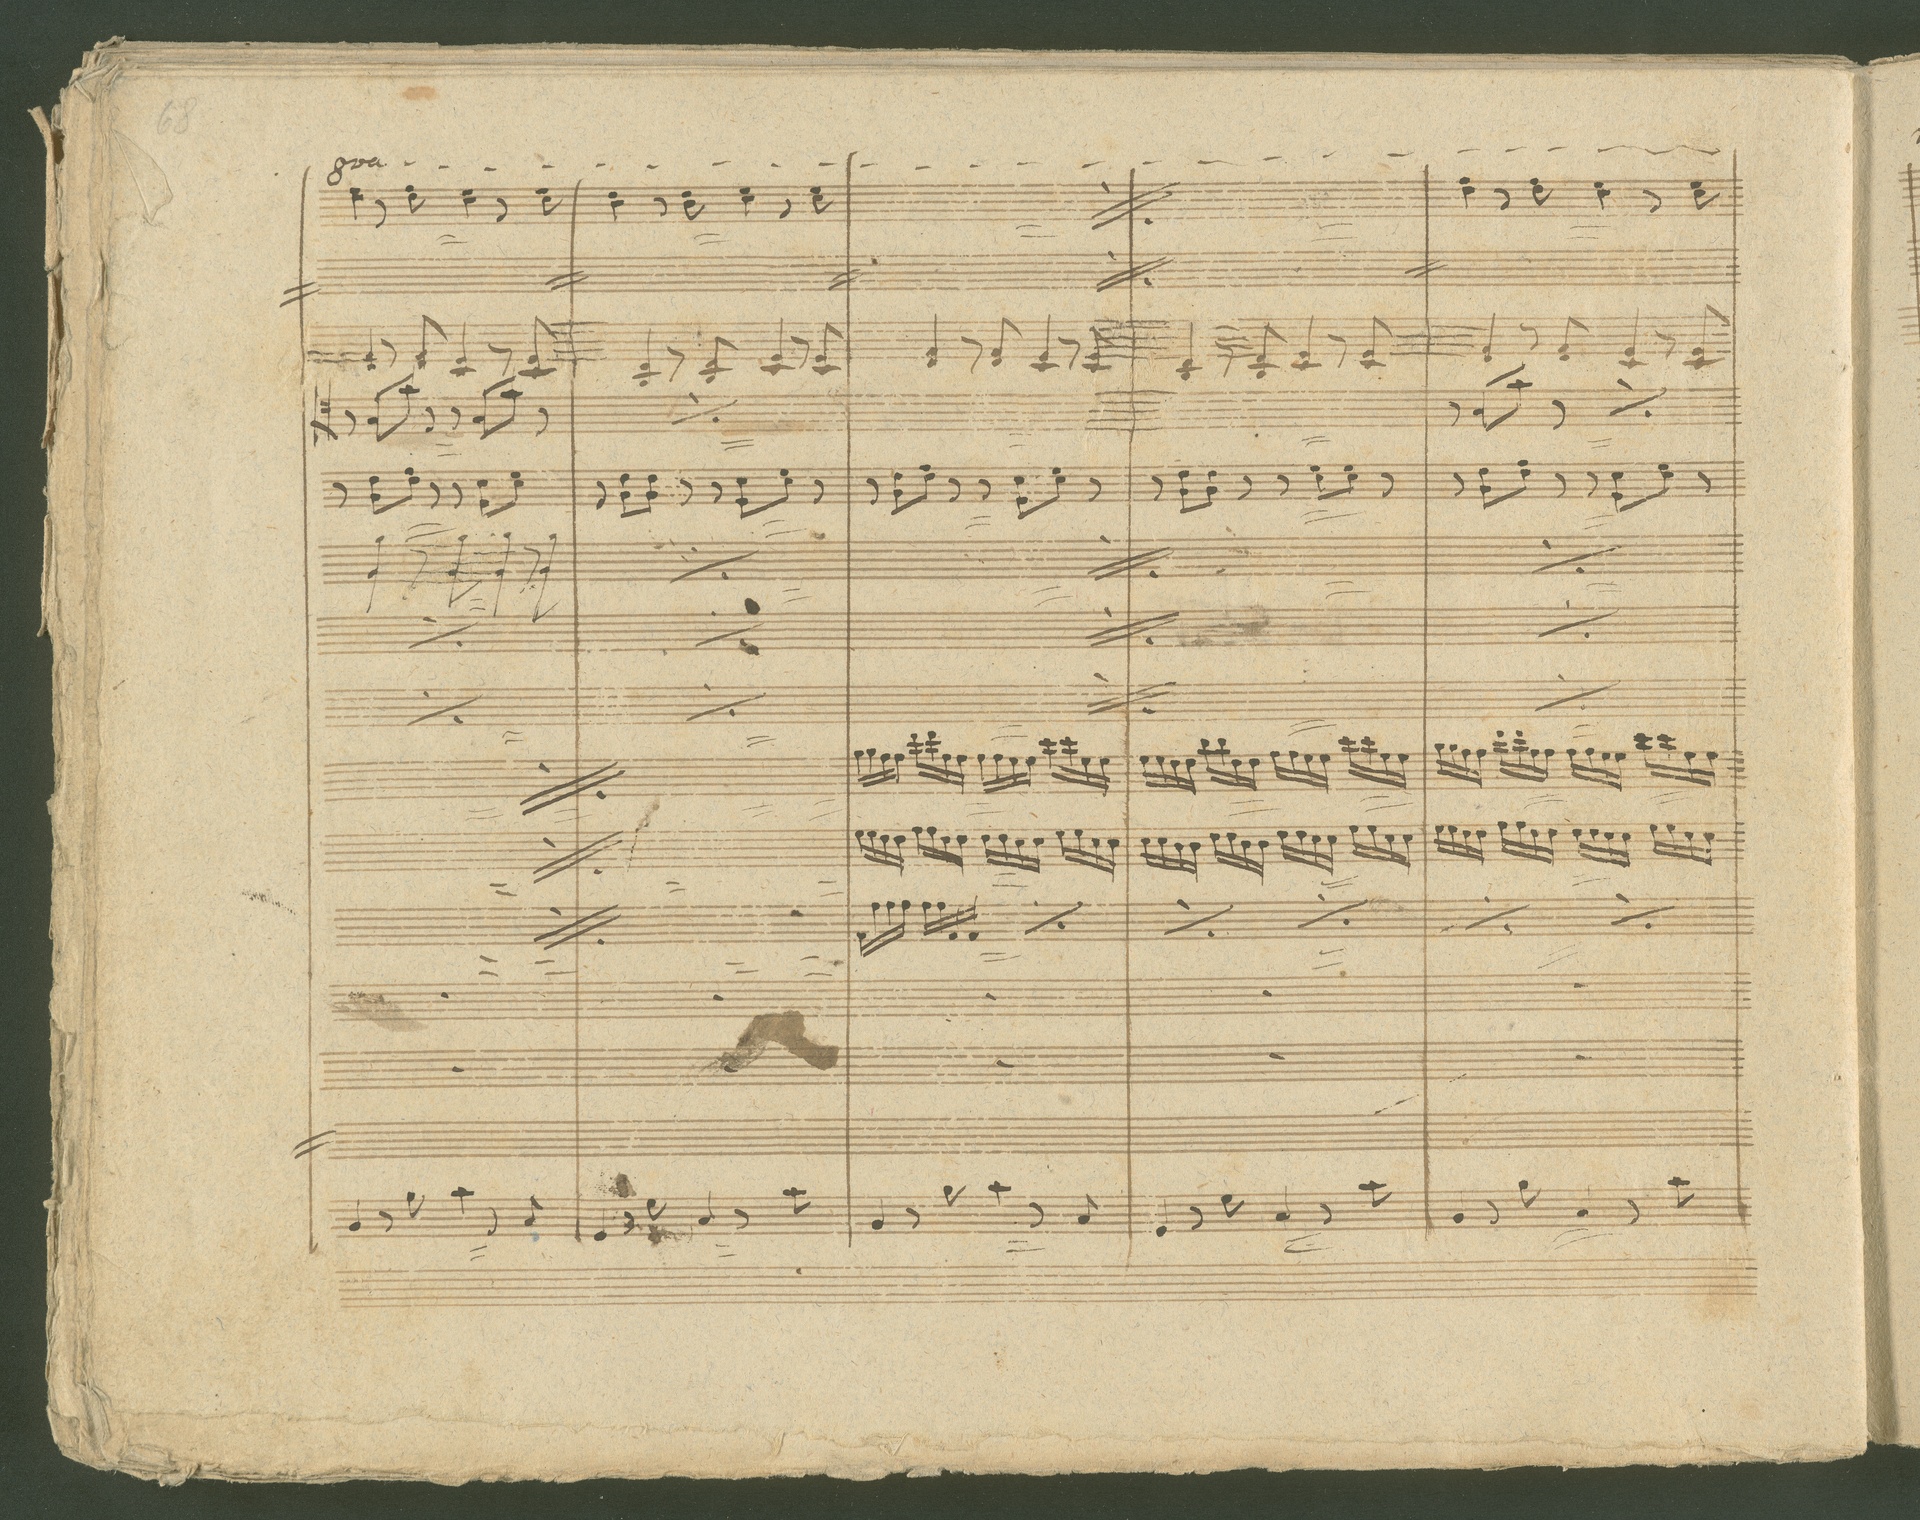 68
8va